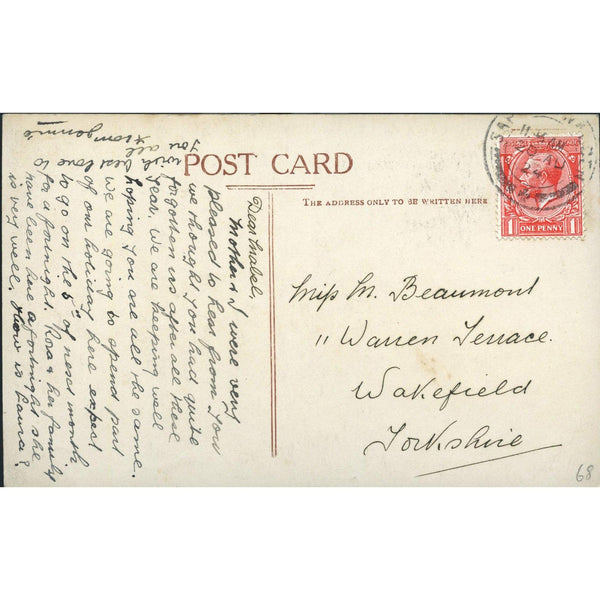 POST CARD
THE ADDRESS ONLY TO BE WRITTEN HERE
Dear Mabel,
Mother & I were very
pleased to hear from you
we thought you had quite
forgotten us after all these
years. We are keeping well
hoping you are all the same.
We are going to spend part
of our holiday here expect
to go on the 5th of next month
for a fortnight. Nora & her family
have been here a fortnight she
is very well. How is Laura?
with best love to
you all
from
Miss M. Beaumont
11 Warren Terrace
Wakefield
Yorkshire
1 ONE PENNY 1
68